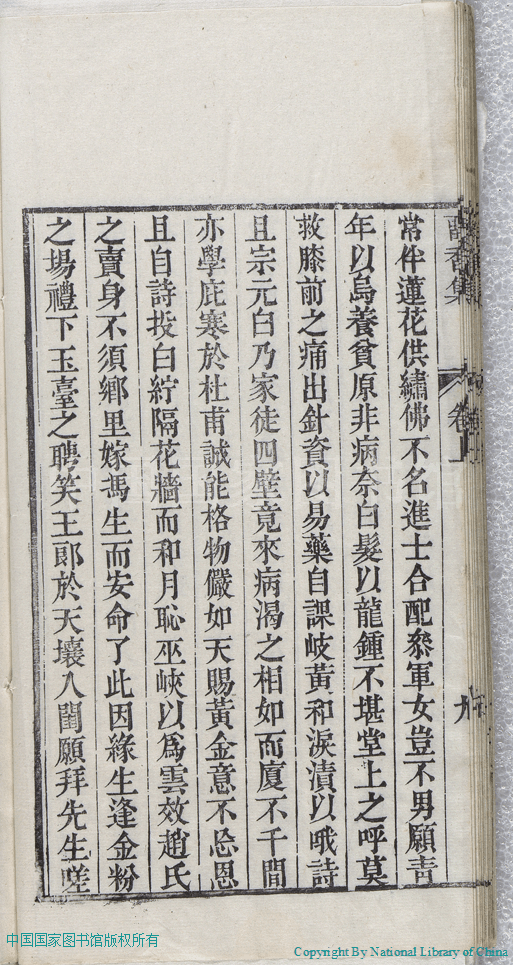 香集
卷上
九
常伴蓮花供繡佛不名進士合配叅軍女豈不男願青
年以烏養貧原非病奈白髮以龍鍾不堪堂上之呼莫
救膝前之痛出針資以易藥自課岐黃和淚漬以哦詩
且宗元白乃家徒四壁竟來病渴之相如而廈不千間
亦學庇寒於杜甫誠能格物儼如天賜黃金意不忘恩
且自詩投白紵隔花牆而和月恥巫峽以爲雲效趙氏
之賣身不須鄉里嫁馮生而安命了此因緣生逢金粉
之場禮下玉臺之聘笑王郎於天壤入閨願拜先生嗟
中国国家图书馆版权所有
Copyright By National Library of China